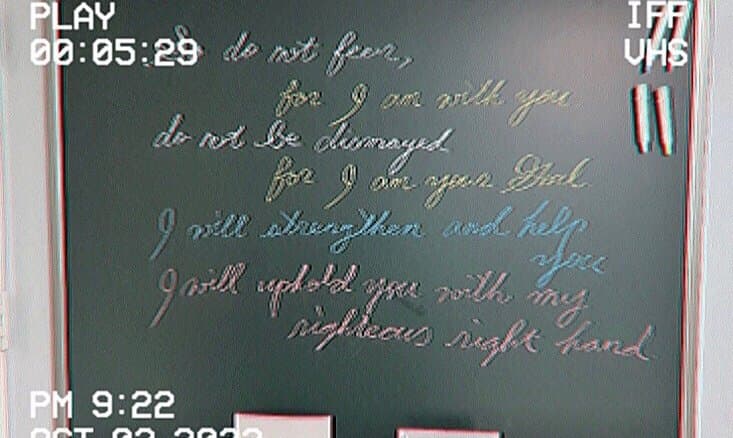 PLAY
IFF
00:05:29
VHS
So do not fear,
for I am with you
do not be dismayed
for I am your God
I will strengthen and help
you
I will uphold you with my
righteous right hand
PM 9:22